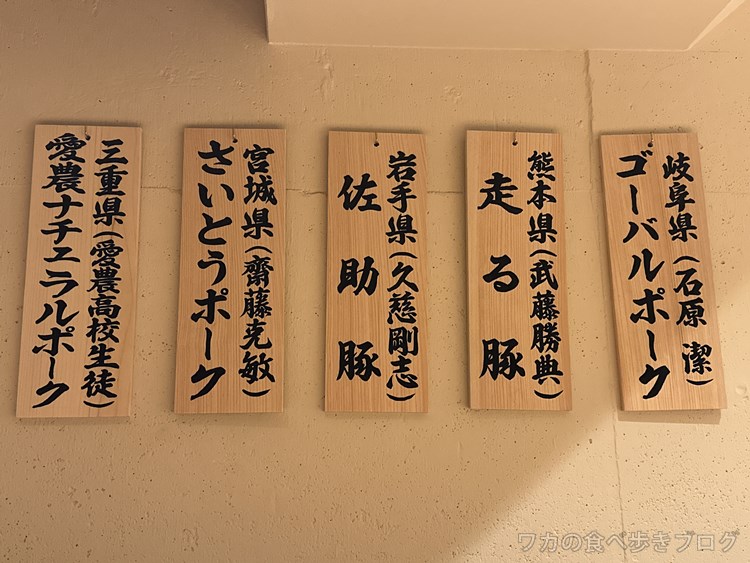 岐阜県(石原 潔)
ゴーバルポーク
熊本県(武藤勝典)
走る豚
岩手県(久慈剛志)
佐助豚
宮城県(齋藤克敏)
さいとうポーク
三重県(愛農高校生徒)
愛農ナチュラルポーク
ワカの食べ歩きブログ